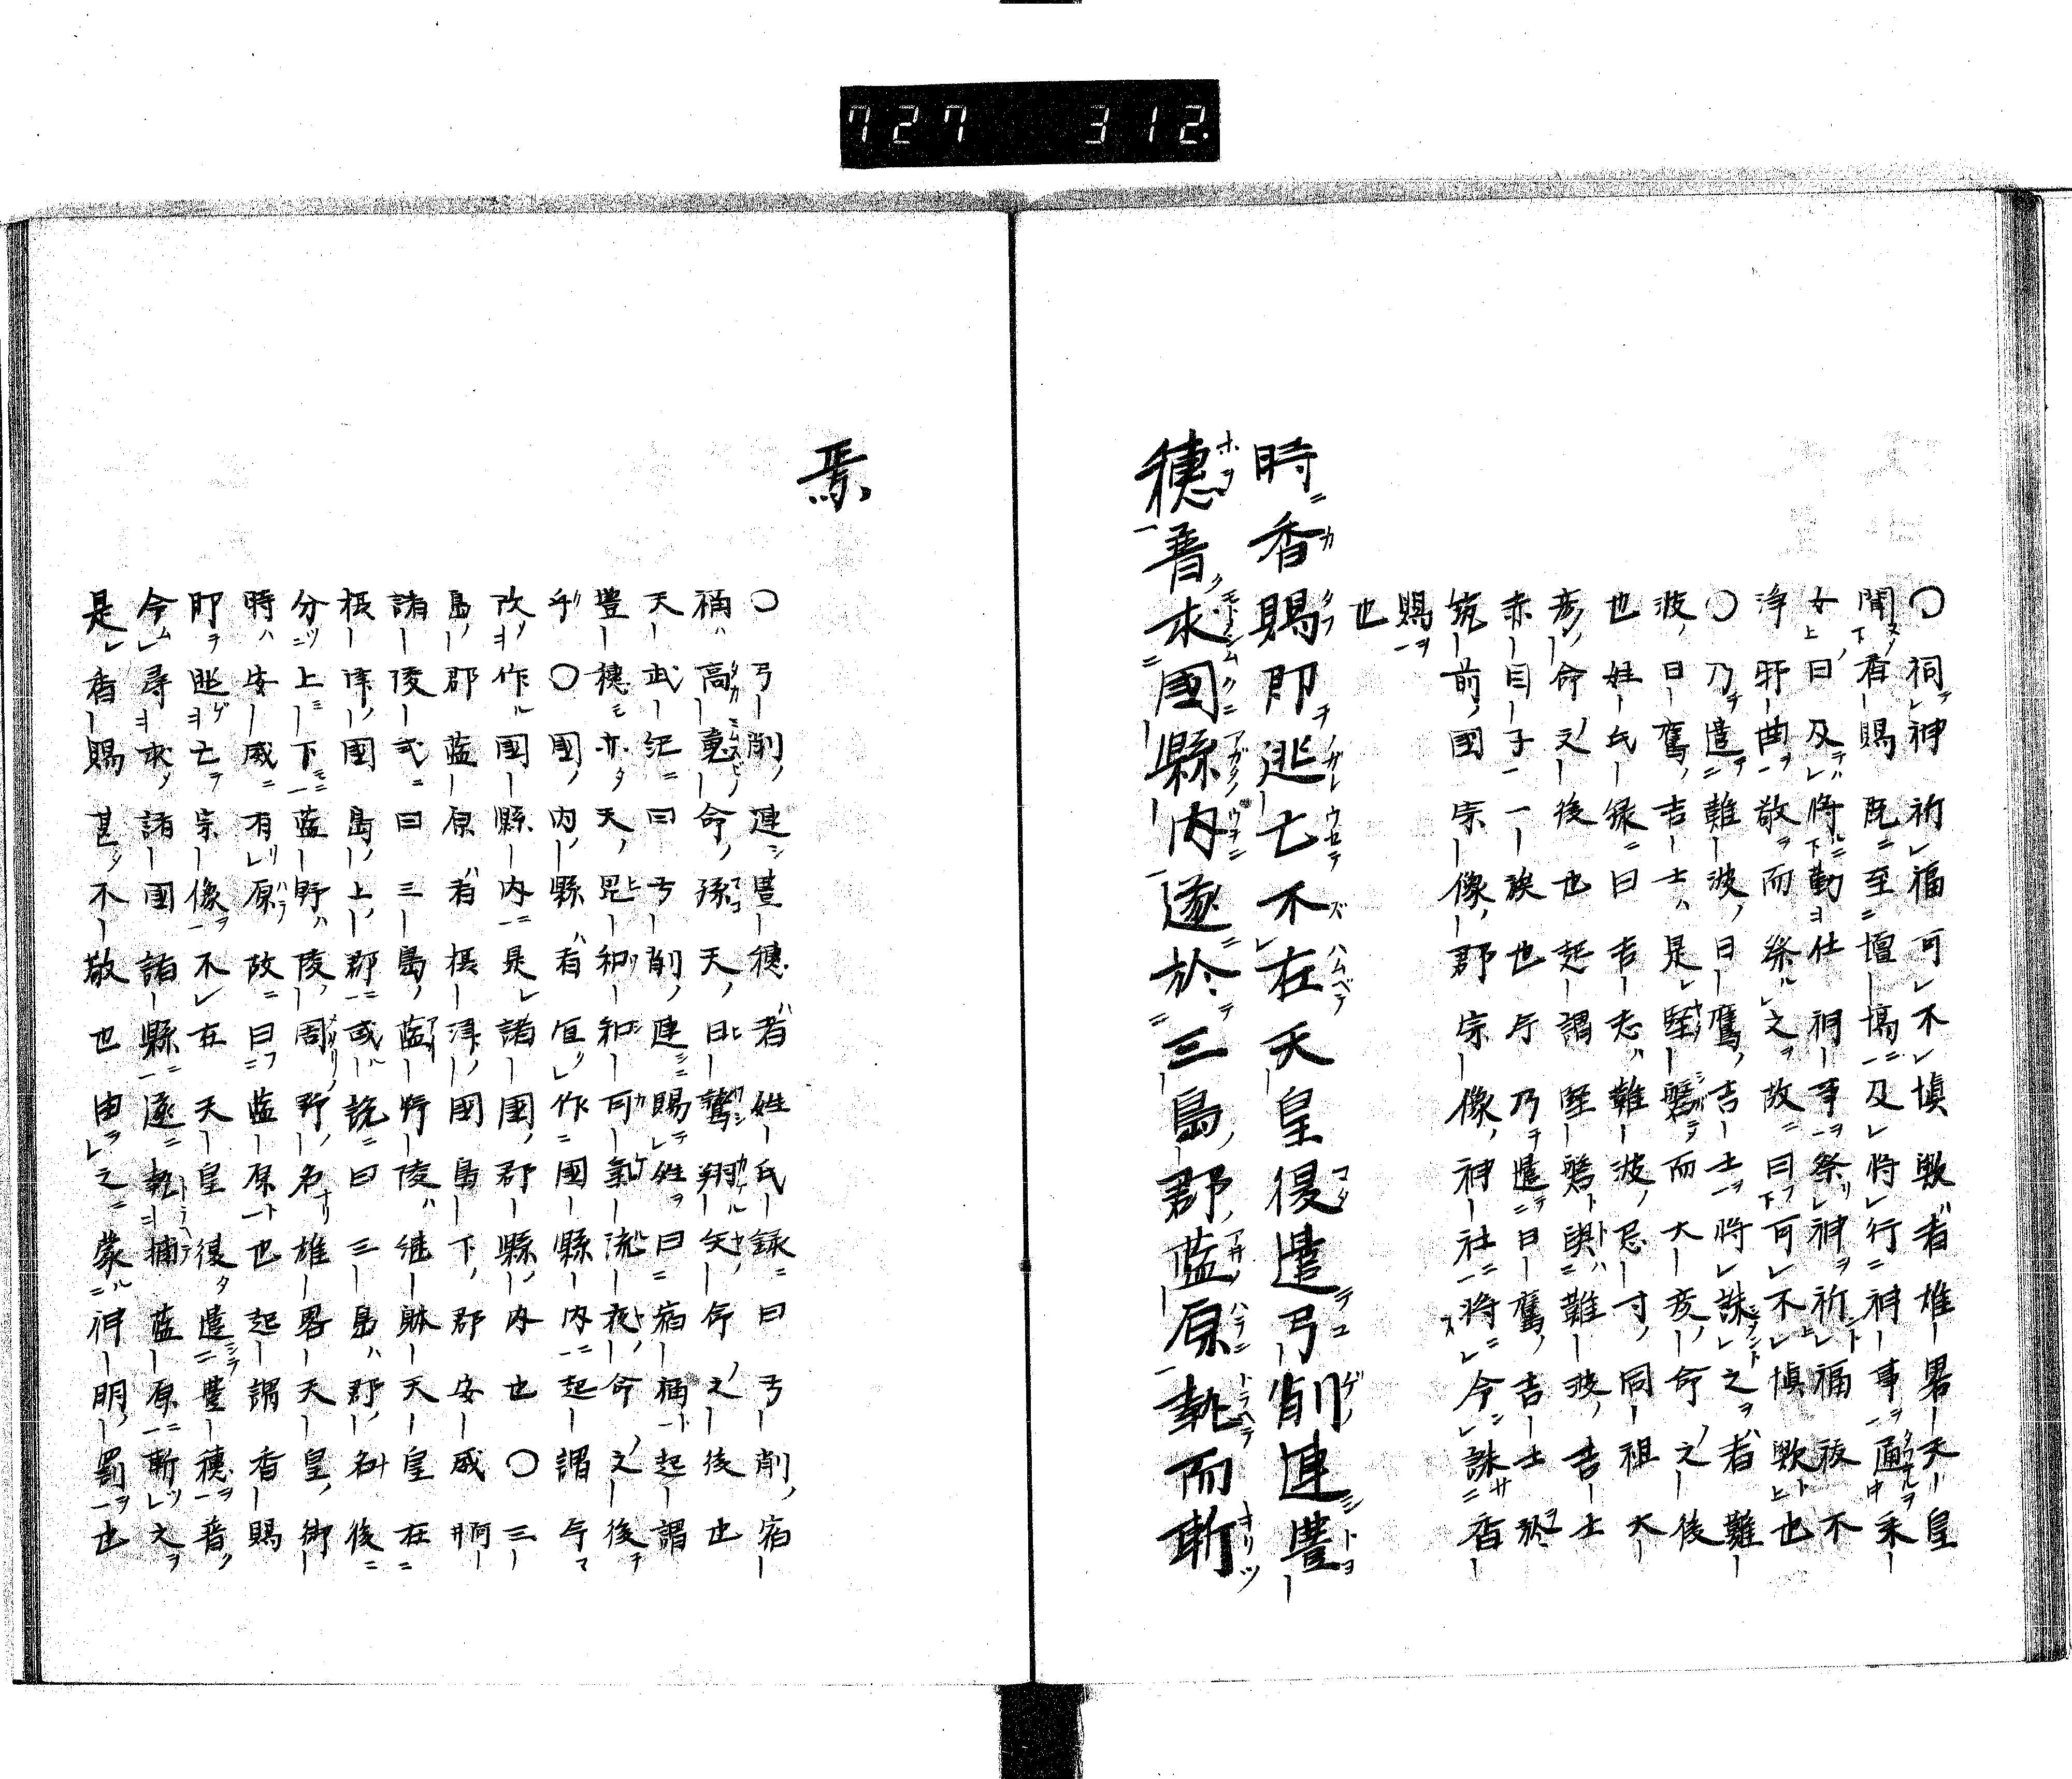 727 312.
〇祠神祈福可不愼歟者雄畧天皇
聞香賜既至壇場及將行神事通采
女曰及將勤仕神事祭神祈福祓不
淨邪曲敬而祭之故曰可不愼歟也
〇乃遣難波日鷹吉士將誅之者難
波日鷹吉士是堅磐而大彦命之後
也姓氏録曰吉志難波忌寸同祖大
彦命之後也起謂堅磐與難波吉士
赤目子一族也乃遣日鷹吉士
筑前國宗像郡宗像神社將令誅香
賜
也
時香賜即逃亡不在天皇復遣弓削連豊
穗普求國縣内遂於三島郡藍原執而斬
焉
〇弓削連豊穗者姓氏録曰弓削宿
祢高意命孫天日鷲翔矢命之後也
天武紀曰弓削連賜姓曰宿祢起謂
豊穗亦天毘和和可氣流夜命之後
乎〇國内縣者宜作國縣内起謂
改作國縣内是諸國郡縣内也〇三
島郡藍原者攝津國島下郡安威
諸陵式曰三島藍野陵継躰天皇在
攝津國島上郡或説曰三島郡名後
分上下藍野陵周野名雄畧天皇御
時安威有原故曰藍原也起謂香賜
即逃亡宗像不在天皇復遣豊穗普
今尋求諸國諸縣遂執捕藍原斬之
是香賜甚不敬也由之蒙神明罰也